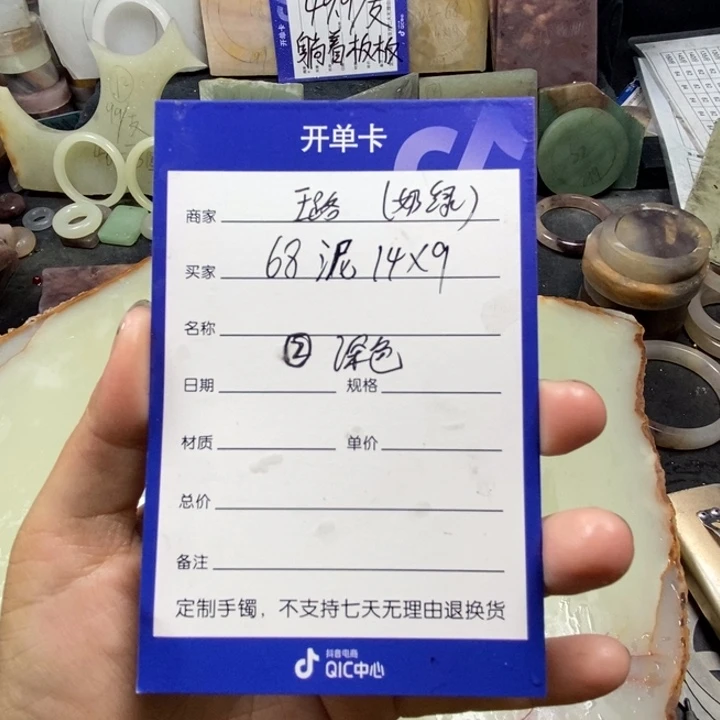 49.9/支
开单卡
躺着板板
开单卡
商家 王路 (奶绿)
买家 68 泥 14X9
名称
② 深色
日期 规格
材质 单价
总价
备注
定制手镯，不支持七天无理由退换货
抖音电商
QIC中心